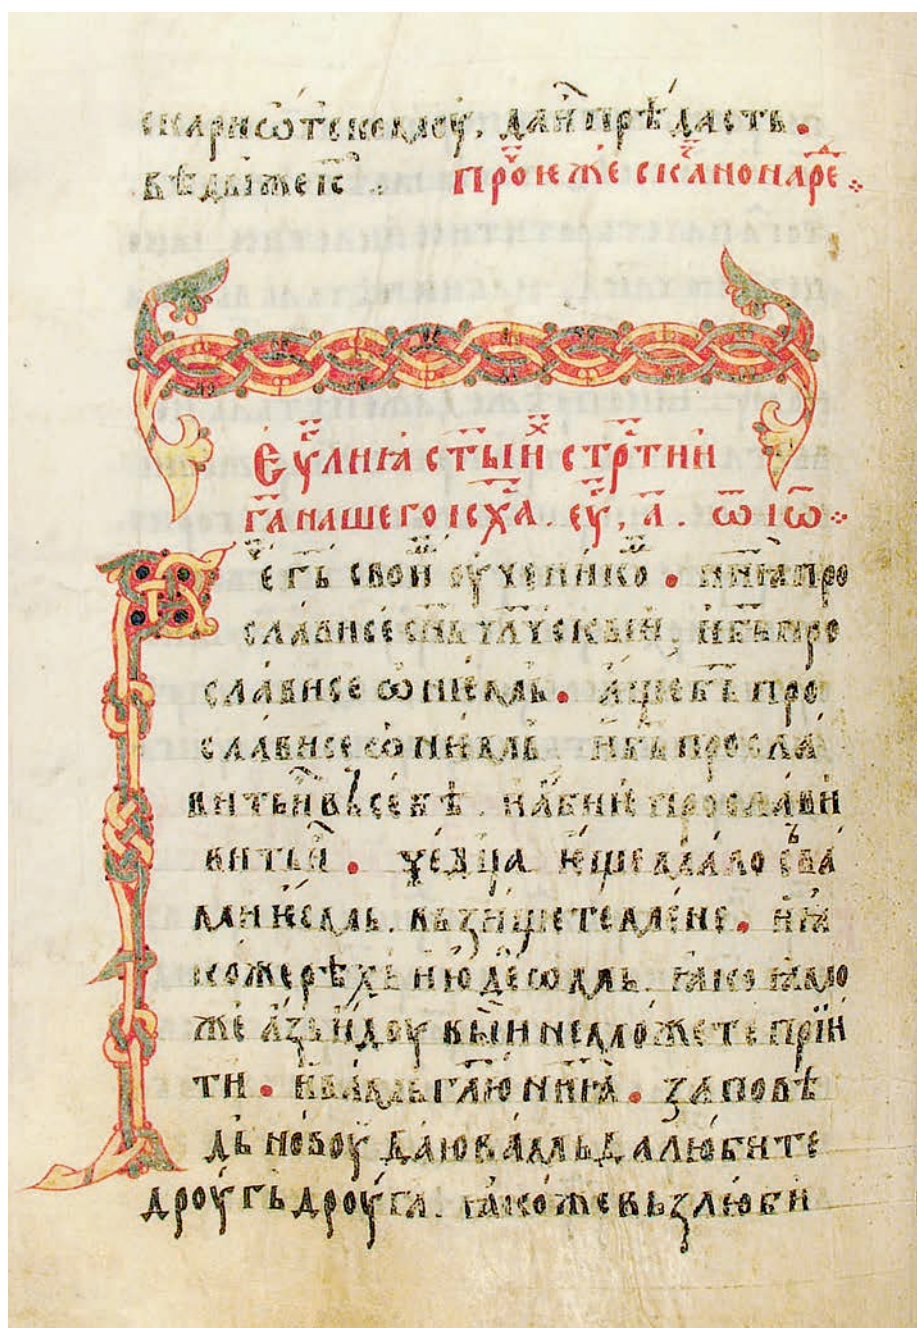 скариѡ́тскомоу, да и҆ прѣдасть.
вѣды же і҃с.: про́ч҇ ѥ́же сказа́ на ѡна́ре
є҆ѵⷢ҇лиꙗ ст҃ыиⷯ стрⷭ҇тии
г҃а нашего іс х҃а. єѵⷢ҇, а҃. ѿ іѡ҃
Рече г҃ь свои́мь оу҆чени́кѡⷨ. нн҃ꙗ про
сла́висе сн҃ь чл҃чьскыи, и҆ б҃ь про
сла́висе ѡ҆ нѥ́мь. а҆́ще б҃ь про
сла́висе ѡ҆ нѥ́мь и҆ б҃ь просла́
вить и҆ вь се́бѣ. и҆ а҆́биѥ просла́ви
вить и҆. че́дца ѥ҆ще ма́ло сь ва́
ми ѥ҆смь. вьзи́щете ме́не. и҆ ꙗ҆́
коже рѣ́хь ию҆де́ѡмь. ꙗ҆ко ꙗ҆мо
же а҆́зь и҆доу вы́ не мо́жете прїи
ти. и҆ ва́мь гл҃ю нн҃ꙗ. за́повѣ
дь но́воу даю ва́мь да лю́бите
дроу́гь дроу́га. ꙗ҆коже вьзлю́би